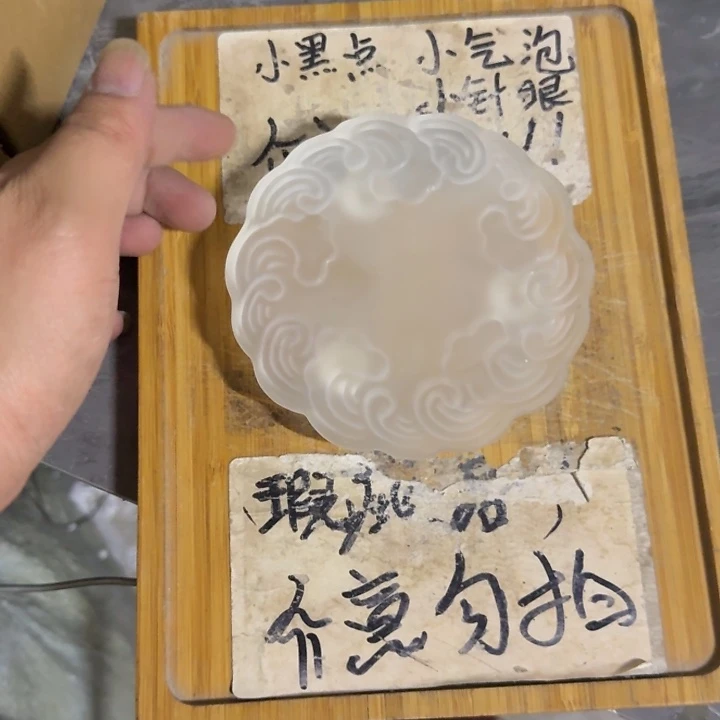 小黑点 小气泡
小针眼
介
(瑕疵品)
介意勿拍